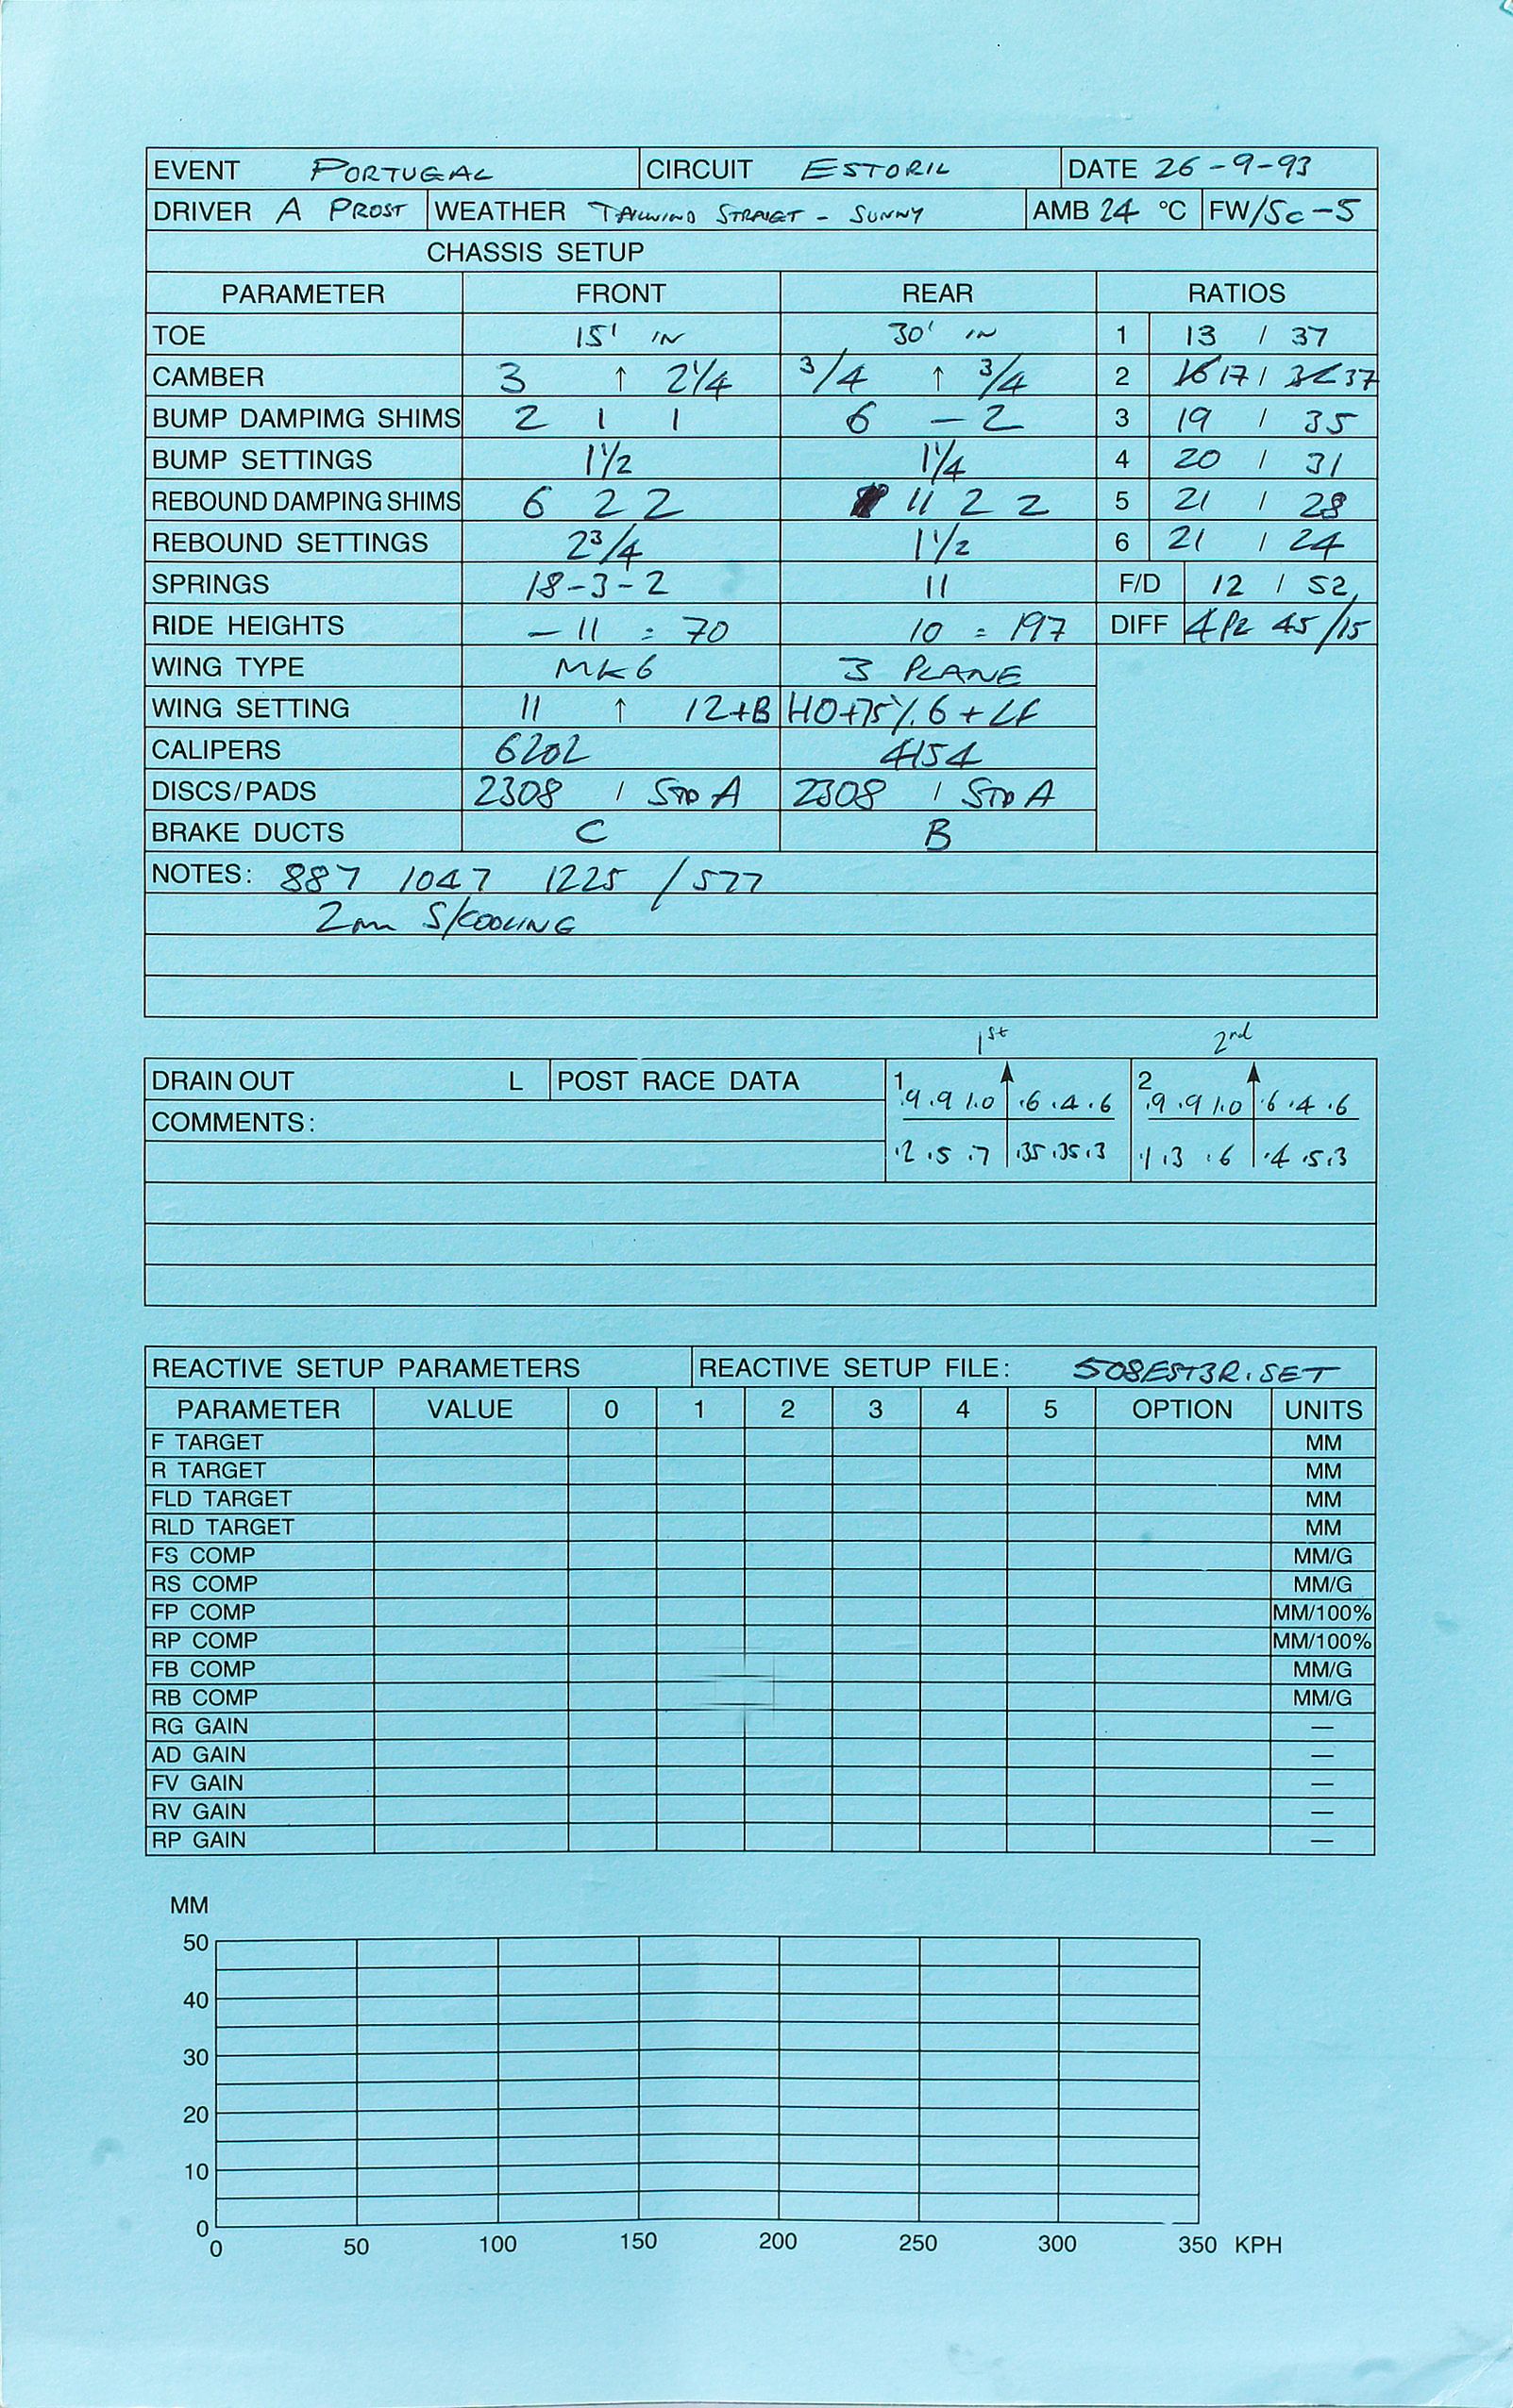 EVENT PORTUGAL CIRCUIT ESTORIL DATE 26-9-93
DRIVER A PROST WEATHER TAILWIND STRAIGT - SUNNY AMB 24 °C FW/5C-5
CHASSIS SETUP
PARAMETER FRONT REAR RATIOS
TOE 15' IN 30' IN 1 13 / 37
CAMBER 3 ↑ 2 1/4 3/4 ↑ 3/4 2 17 / 37
BUMP DAMPIMG SHIMS 2 1 1 6 - 2 3 19 / 35
BUMP SETTINGS 1 1/2 1 1/4 4 20 / 31
REBOUND DAMPING SHIMS 6 2 2 11 2 2 5 21 / 28
REBOUND SETTINGS 2 3/4 1 1/2 6 21 / 24
SPRINGS 18-3-2 11 F/D 12 / 52
RIDE HEIGHTS -11 = 70 10 = 197 DIFF 4 PL 45/15
WING TYPE MK6 3 PLANE
WING SETTING 11 ↑ 12+B HO+75% 6 + LF
CALIPERS 6202 4154
DISCS/PADS 2308 / STD A 2308 / STD A
BRAKE DUCTS C B
NOTES: 887 1047 1225 / 577
2mm S/COOLING
1st 2nd
DRAIN OUT L POST RACE DATA 1 2
.9 .9 1.0 .6 .4 .6 .9 .9 1.0 .6 .4 .6
COMMENTS:
.2 .5 .7 .35 .35 .3 .1 .3 .6 .4 .5 .3
REACTIVE SETUP PARAMETERS REACTIVE SETUP FILE: 508EST3R.SET
PARAMETER VALUE 0 1 2 3 4 5 OPTION UNITS
F TARGET MM
R TARGET MM
FLD TARGET MM
RLD TARGET MM
FS COMP MM/G
RS COMP MM/G
FP COMP MM/100%
RP COMP MM/100%
FB COMP MM/G
RB COMP MM/G
RG GAIN —
AD GAIN —
FV GAIN —
RV GAIN —
RP GAIN —
MM
50
40
30
20
10
0
0 50 100 150 200 250 300 350 KPH